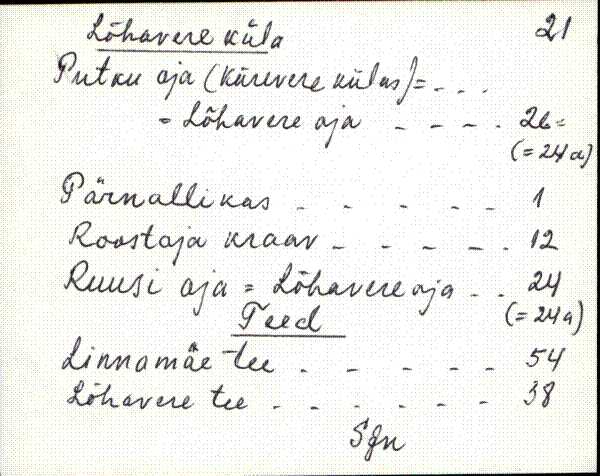 Lõhavere küla 21
Putku oja (Kürevere külas) = - - -
= Lõhavere oja - - - - 26 =
(= 24a)
Pärnallikas - - - - - 1
Roostoja kraav - - - - - 12
Ruusi oja = Lõhavere oja - - 24
(= 24a)
Teed
Linnamäe tee - - - - - 54
Lõhavere tee - - - - - - 38